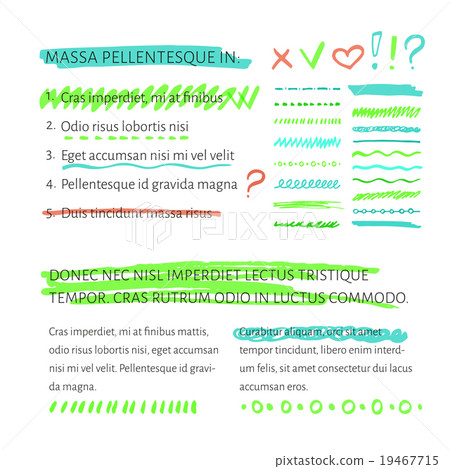 MASSA PELLENTESQUE IN:
1. Cras imperdiet, mi at finibus
2. Odio risus lobortis nisi
3. Eget accumsan nisi mi vel velit
4. Pellentesque id gravida magna ?
5. Duis tincidunt massa risus
! ! ?
PIXTA
DONEC NEC NISL IMPERDIET LECTUS TRISTIQUE
TEMPOR. CRAS RUTRUM ODIO IN LUCTUS COMMODO.
Cras imperdiet, mi at finibus mattis,
odio risus lobortis nisi, eget accumsan
nisi mi vel velit. Pellentesque id gravi-
da magna.
Curabitur aliquam, orci sit amet
tempor tincidunt, libero enim interd-
um felis, sit amet consectetur dui lacus
accumsan eros.
pixta.jp - 19467715